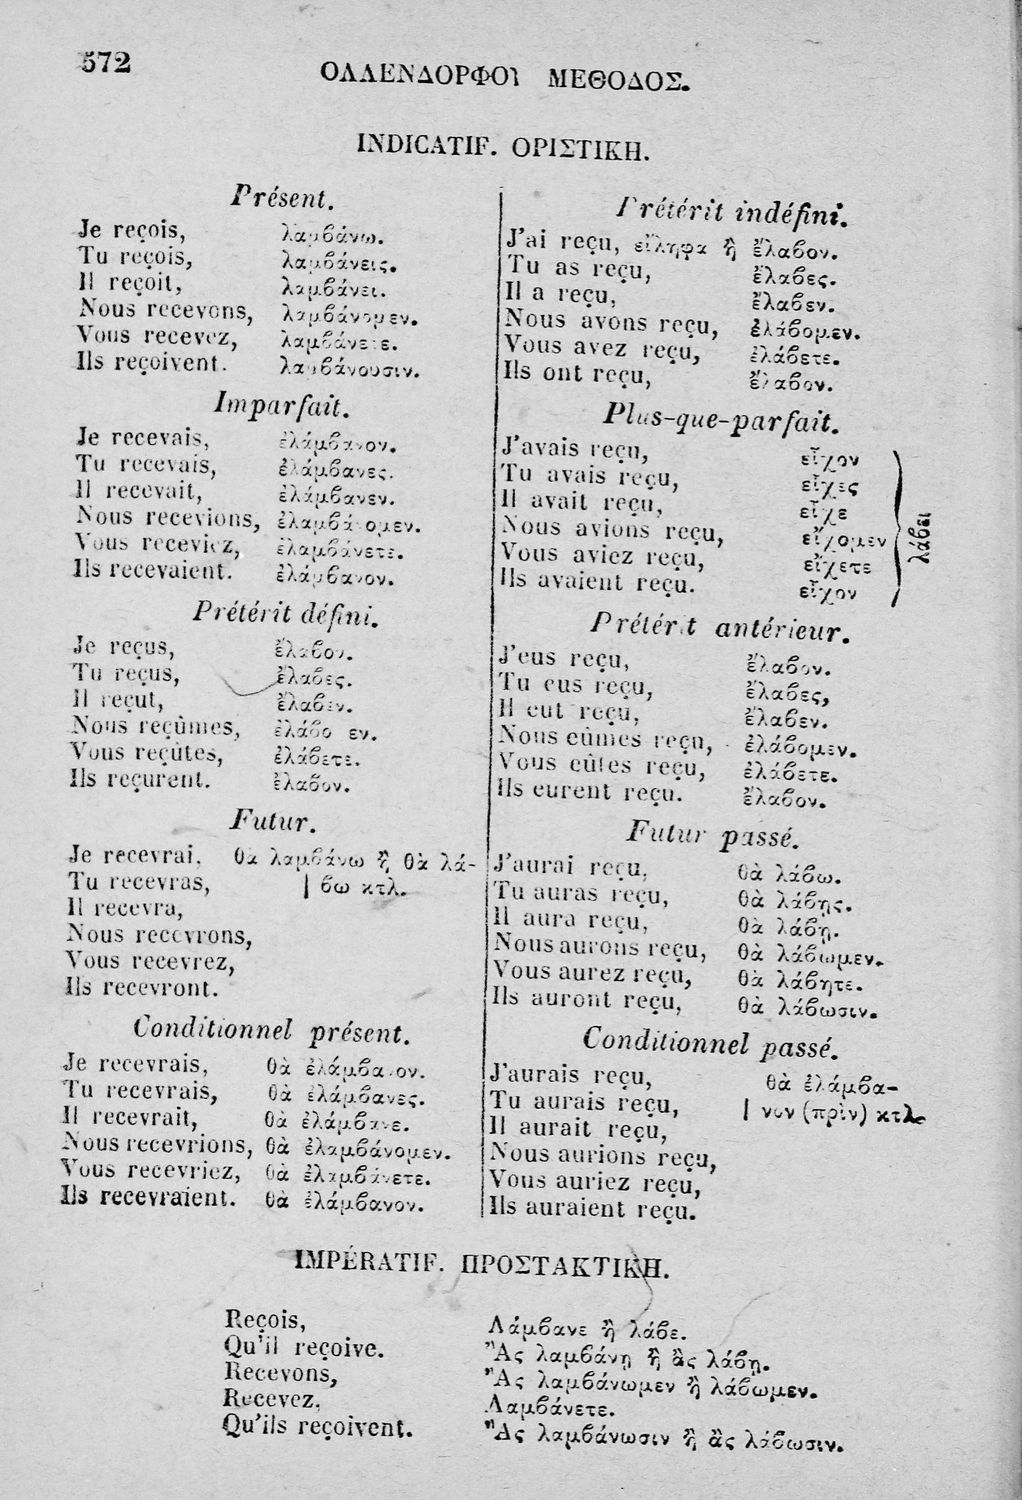 572
ΟΛΛΕΝΔΟΡΦΟΥ ΜΕΘΟΔΟΣ.
INDICATIF. ΟΡΙΣΤΙΚΗ.
Présent.
Je reçois, λαμβάνω.
Tu reçois, λαμβάνεις.
Il reçoit, λαμβάνει.
Nous recevons, λαμβάνομεν.
Vous recevez, λαμβάνετε.
Ils reçoivent. λαμβάνουσιν.
Imparfait.
Je recevais, ἐλάμβανον.
Tu recevais, ἐλάμβανες.
Il recevait, ἐλάμβανεν.
Nous recevions, ἐλαμβάνομεν.
Vous receviez, ἐλαμβάνετε.
Ils recevaient. ἐλάμβανον.
Prétérit défini.
Je reçus, ἔλαβον.
Tu reçus, ἔλαβες.
Il reçut, ἔλαβεν.
Nous reçûmes, ἐλάβομεν.
Vous reçûtes, ἐλάβετε.
Ils reçurent. ἔλαβον.
Futur.
Je recevrai. θὰ λαμβάνω ἢ θὰ λά-
Tu recevras, | βω κτλ.
Il recevra,
Nous recevrons,
Vous recevrez,
Ils recevront.
Conditionnel présent.
Je recevrais, θὰ ἐλάμβανον.
Tu recevrais, θὰ ἐλάμβανες.
Il recevrait, θὰ ἐλάμβανε.
Nous recevrions, θὰ ἐλαμβάνομεν.
Vous recevriez, θὰ ἐλαμβάνετε.
Ils recevraient. θὰ ἐλάμβανον.
Prétérit indéfini.
J'ai reçu, εἴληφα ἢ ἔλαβον.
Tu as reçu, ἔλαβες.
Il a reçu, ἔλαβεν.
Nous avons reçu, ἐλάβομεν.
Vous avez reçu, ἐλάβετε.
Ils ont reçu, ἔλαβον.
Plus-que-parfait.
J'avais reçu, εἶχον
Tu avais reçu, εἶχες
Il avait reçu, εἶχε
Nous avions reçu, εἴχομεν
Vous aviez reçu, εἴχετε
Ils avaient reçu. εἶχον
λάβει
Prétérit antérieur.
J'eus reçu, ἔλαβον.
Tu eus reçu, ἔλαβες,
Il eut reçu, ἔλαβεν.
Nous eûmes reçu, ἐλάβομεν.
Vous eûtes reçu, ἐλάβετε.
Ils eurent reçu. ἔλαβον.
Futur passé.
J'aurai reçu, θὰ λάβω.
Tu auras reçu, θὰ λάβῃς.
Il aura reçu, θὰ λάβῃ.
Nous aurons reçu, θὰ λάβωμεν.
Vous aurez reçu, θὰ λάβητε.
Ils auront reçu, θὰ λάβωσιν.
Conditionnel passé.
J'aurais reçu, θὰ ἐλάμβα-
Tu aurais reçu, | νον (πρὶν) κτλ.
Il aurait reçu,
Nous aurions reçu,
Vous auriez reçu,
Ils auraient reçu.
IMPÉRATIF. ΠΡΟΣΤΑΚΤΙΚΗ.
Reçois, Λάμβανε ἢ λάβε.
Qu'il reçoive. Ἂς λαμβάνῃ ἢ ἂς λάβῃ.
Recevons, Ἂς λαμβάνωμεν ἢ λάβωμεν.
Recevez, Λαμβάνετε.
Qu'ils reçoivent. Ἂς λαμβάνωσιν ἢ ἂς λάβωσιν.